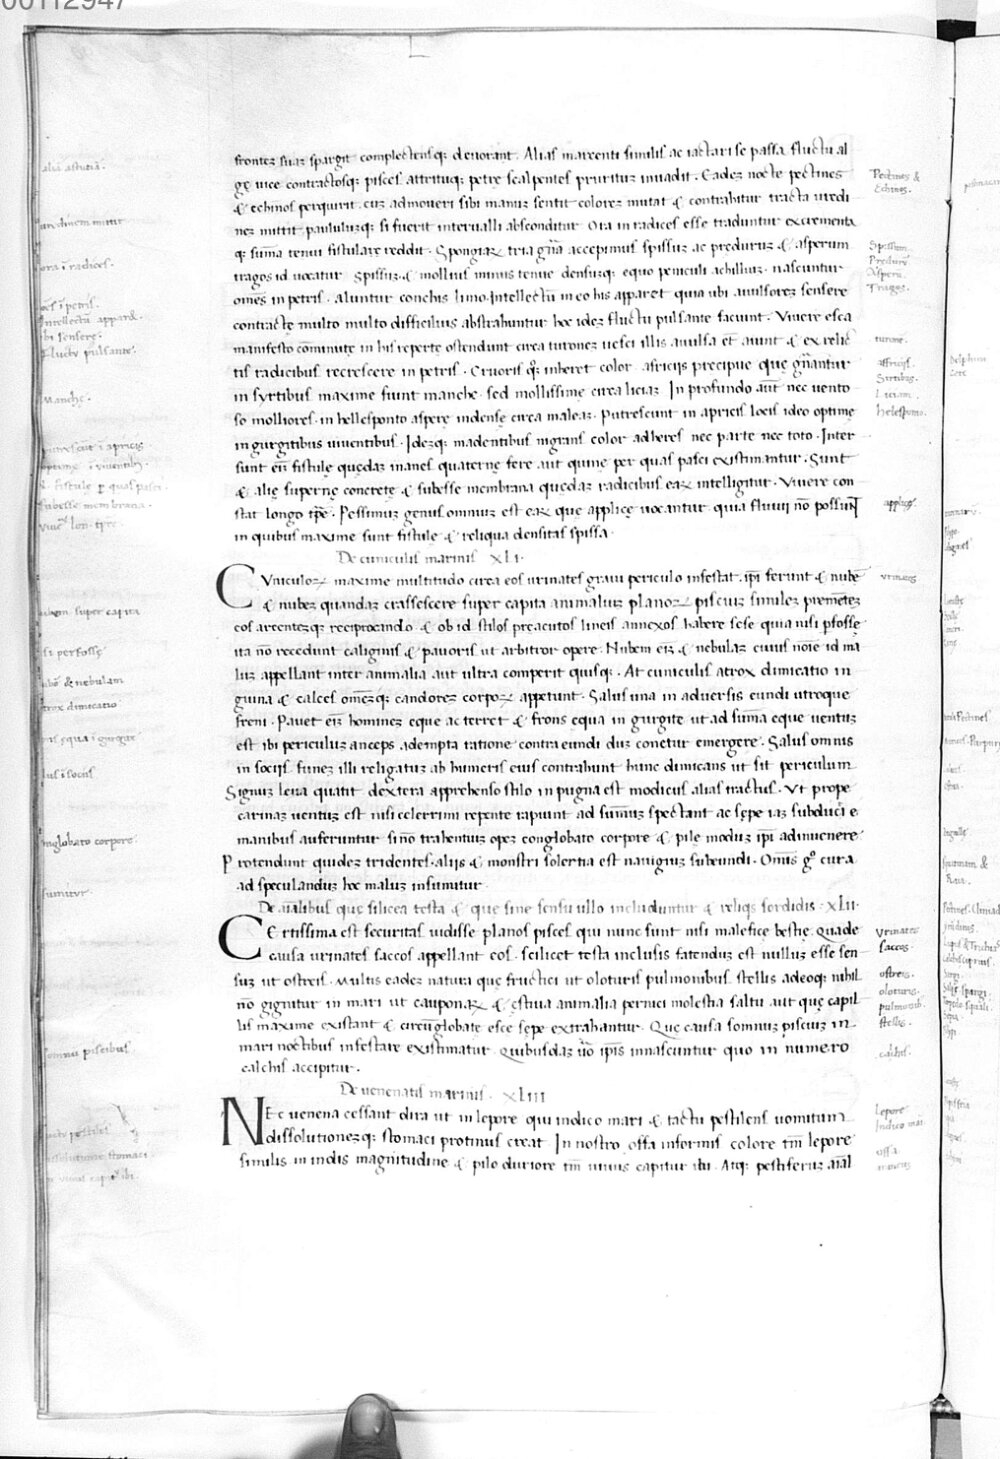 frontez suaz spargit complectensq; deuorant. Alias marcenti similis ac iactari se passa fluctu al
gę uice contractosq; pisces attrituq; petrę scalpentes pruritur inuadit. Eadez nocte pectines
& echinos perquirit. cuz admoueri sibi manuz sentit colorez mutat & contrahitur tracta uredi
nez mittit paululuzq; si fuerit interualli absconditur Ora in radices esse traduntur excrementa
q; suma tenui fistulare reddit. Spongiaꝝ tria gña accepimus spissuz ac preduruz & asperum
tragos id uocatur spissuz & mollius minus tenue densuzq; equo peniculi achilliuz. nascuntur
omẽs in petris. aluntur conchis limo. Intellectũ in eo his apparet quia ubi auulsorez sensere
contractę multo multo difficilius abstrahuntur hoc idez fluctu pulsante faciunt. Viuere esca
manifesto cõminutę in his repertę ostendunt circa turonez uesci illis auulsa et aiunt & ex relic
tis radicibus recrescere in petris. Cruoris qͦ inheret color. africijs precipue que gñantur
in syrtibus maxime fiunt manche. sed mollissime circa liciaz. In profundo aut nec uento
so molliores. in hellesponto asperę indense circa maleaz. Putrescunt in apricis locis ideo optime
in gurgitibus uiuentibus. Idezq; madentibus nigrans color adheres nec parte nec toto. Inter
sunt eñ fistulę quędaz inanes quaternę fere aut quine per quas pasci existimantur. Sunt
& alię supernę concretę & subesse membrana quędaz radicibus eaꝝ intelligitur. Viuere con
stat longo tp̃e. Pessimuz genus omniuz est eaꝝ quę applicę uocantur quia fluuij nõ possunt
in quibus maxime sunt fistulę & reliqua densitas spissa.
De cuniculis marinis XLI.
CVniculoꝝ maxime multitudo circa eos urinates graui periculo infestat. ip̃i ferunt & nubẽ
& nubez quandaz crassescere super capita animaliuz planoꝝ pisciuz similez premẽtez
eos arcentezq; reciprocando & ob id stilos pręacutos lineis annexos habere sese quia nisi pfosse
ita nõ recedunt caliginis & pauoris ut arbitror opere. Nubem eiz & nebulaz cuius noĩe id ma
luz appellant inter animalia aut ultra comperit quisq;. At cuniculis atrox dimicatio in
guina & calces omẽzq; candorez corpoꝝ appetunt. Salus una in aduersis eundi utroque
freni. Pauet eiz hominez eque ac terret & frons equa in gurgite ut ad suma eque uentuz
est ibi periculuz anceps adempta ratione contra eundi duz conetur emergere. Salus omnis
in socijs funez illi religatuz ab humeris eius contrahunt hunc dimicans ut sit periculum
Signuz leua quatit dextera apprehenso stilo in pugna est modicus alias tractus. Vt prope
carinaz uentuz est nisi celerrimi repente rapiunt ad sumuz spectant ac sępe iaz subduci e
manibus auferuntur si nõ trahentiuz opez conglobato corpore & pile moduz ip̃i adiuuenere
Protendunt quidez tridentes. alijs & monstri solertia est nauigiuz subeundi. Omis gͦ cura
ad speculanduz hoc maluz insumitur.
De aĩalibus que silicea testa & que sine sensu ullo includuntur & reliqs sordidis. XLII.
CErtissima est securitas uidisse planos pisces qui nunc sunt nisi malefice bestię. Quade
causa urinates saccos appellant eos. scilicet testa inclusis fatenduz est nulluz esse sen
suz ut ostreis. multis eadez natura que fructici ut oloturis pulmonibus stellis adeoq; nihil
nõ gignitur in mari ut cauponaꝝ & ęstiua animalia pernici molesta saltu aut quę capil
lis maxime existant & circũglobatę escę sępe extrahantur. Quę causa somnuz pisciuz in
mari noctibus infestare existimatur. Quibusdaz uͦo ip̃is innascuntur quo in numero
calchis accipitur.
De uenenatis marinis. XLIII
NEc uenena cessant dira ut in lepore qui indico mari & tactu pestilens uomitum
dissolutionezq; stomaci protinus creat In nostro offa informis colore tm̃ lepore
similis in indis magnitudine & pilo duriore tm̃ uiuus capitur ibi. Atq; pestiferuz aĩal
Pectines &
Echinos.
Spissum.
Tragos.
turone.
Syrtibus.
Liciam.
helesponto.
applicę.
urinates
Vrinates
saccos
ostreis.
oloturis.
pulmonib.
stellis.
calchis.
Lepore
Indico mari
offa
ora ĩ radices.
oes ĩ petris.
Intellectũ apparet.
ibi sensere.
fluctu pulsante.
Manche.
Subesse membrana.
Viuere lon. tp̃re.
nubem super capita
si perfossę
& nebulam
atrox dimicatio
Salus ĩ socijs
conglobato corpore.
somnu piscibus.